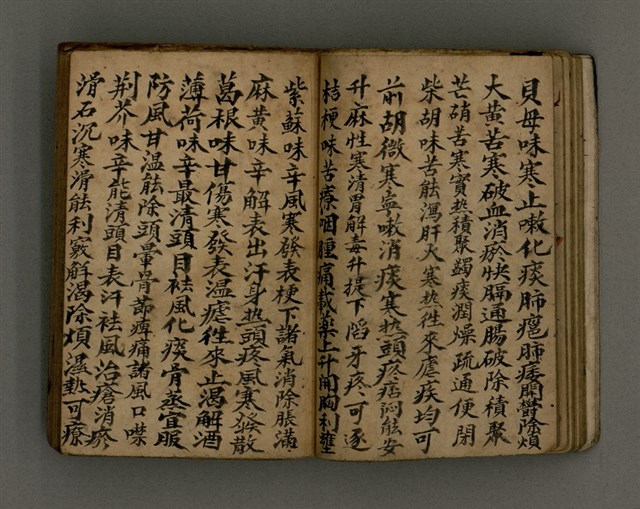 貝母味寒止嗽化痰肺癰肺痿開鬱除煩
大黃苦寒破血消瘀快膈通腸破除積聚
芒硝苦寒實热積聚蠲痰潤燥疏通便閉
柴胡味苦能瀉肝火寒热徃來瘧疾均可
前胡微寒寧嗽消痰寒热頭疼痞悶能安
升麻性寒清胃解毒升提下陷牙疼可逐
桔梗味苦療咽腫痛載藥上升開胸利壅
紫蘇味辛風寒發表梗下諸氣消除脹滿
麻黃味辛解表出汗身热頭疼風寒發散
葛根味甘傷寒發表温瘧徃來止渴解酒
薄荷味辛最清頭目袪風化痰骨蒸宜服
防風甘温能除頭暈骨節痺痛諸風口噤
荆芥味辛能清頭目表汗袪風治瘡消瘀
滑石沉寒滑能利竅解渴除煩濕熱可療